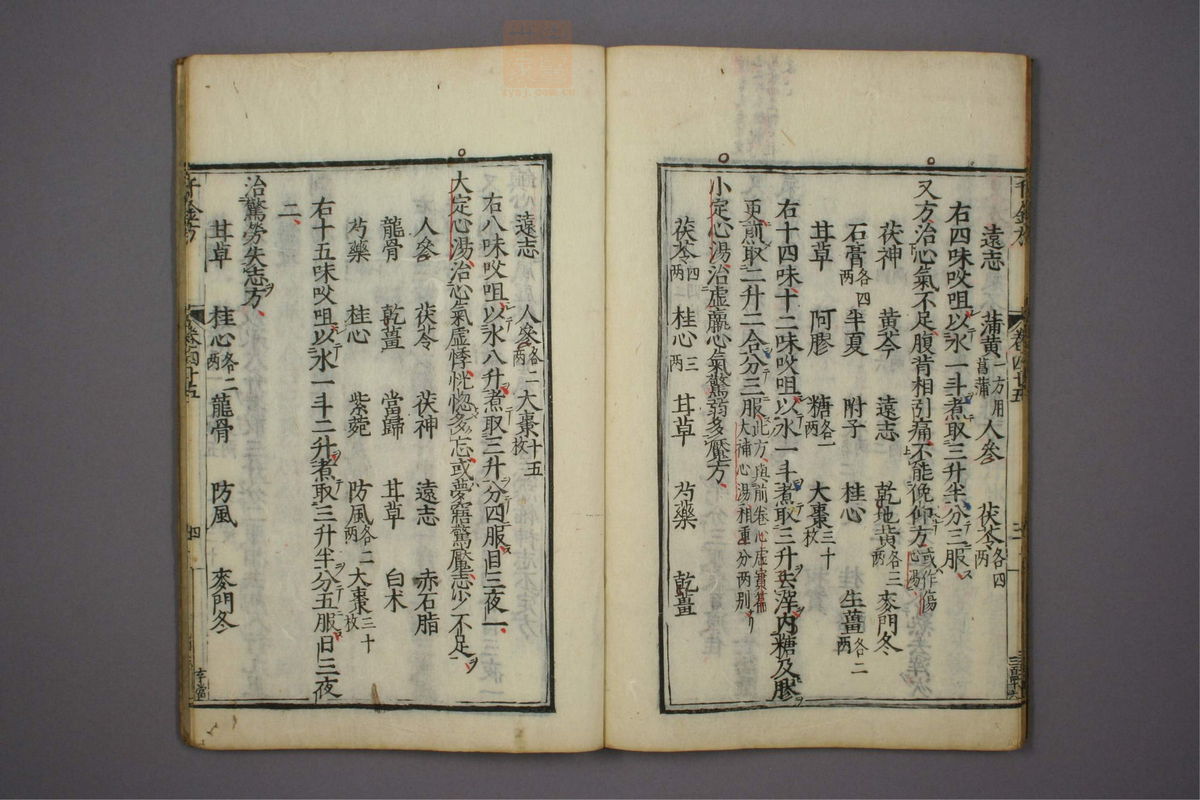 遠志　蒲黃一方用菖蒲　人參　茯苓各四两
右四味㕮咀以水一斗煮取三升半分三服
又方治心氣不足腹背相引痛不能俛仰方或作傷心湯
茯神　黃芩　遠志　乾地黃各三两　麥門冬
石膏各四两　半夏　附子　桂心　生薑各二两
甘草　阿膠　糖各一两　大棗三十枚
右十四味十二味㕮咀以水一斗煮取三升去滓内糖及膠
更煎取二升二合分三服此方與前卷心虛實篇大補心湯相重分两別
小定心湯治虛羸心氣驚弱多魘方
茯苓四两　桂心三两　甘草　芍藥　乾薑
遠志　人參各二两　大棗十五枚
右八味㕮咀以水八升煮取三升分四服日三夜一
大定心湯治心氣虛悸恍惚多忘或夢寤驚魘志少不足
人參　茯苓　茯神　遠志　赤石脂
龍骨　乾薑　當歸　甘草　白术
芍藥　桂心　紫菀　防風各二两　大棗三十枚
右十五味㕮咀以水一斗二升煮取三升半分五服日三夜
二
治驚勞失志方
甘草　桂心各二两　龍骨　防風　麥門冬
千金方　卷四十五　四